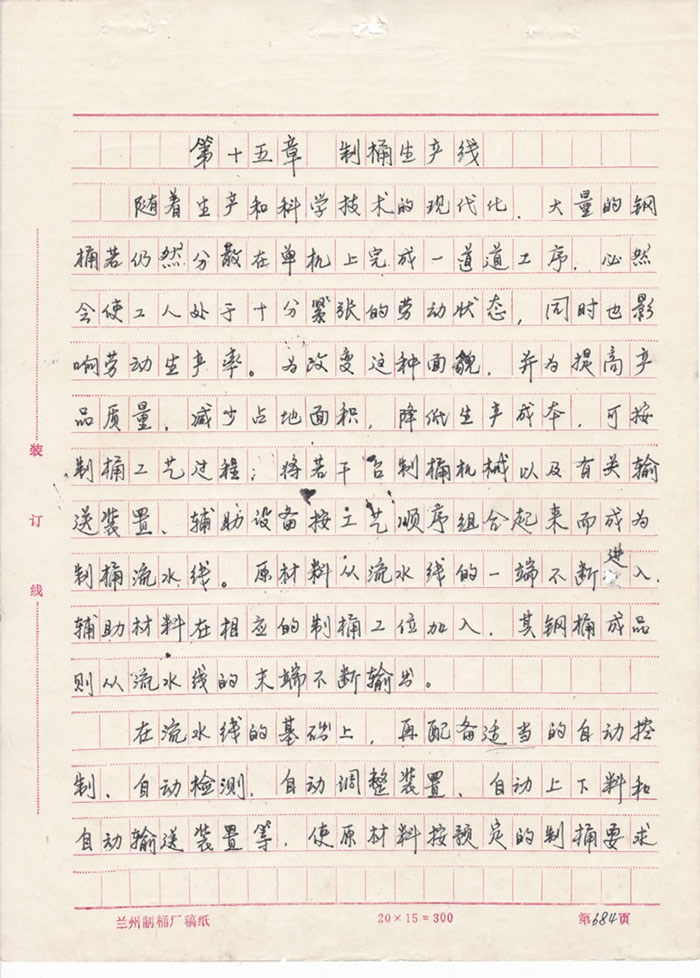 第十五章 制桶生产线
随着生产和科学技术的现代化，大量的钢
桶若仍然分散在单机上完成一道道工序，必然
会使工人处于十分紧张的劳动状态，同时也影
响劳动生产率。为改变这种面貌，并为提高产
品质量，减少占地面积，降低生产成本，可按
制桶工艺过程；将若干台制桶机械以及有关输
送装置、辅助设备按工艺顺序组合起来而成为
制桶流水线。原材料从流水线的一端不断进入，
辅助材料在相应的制桶工位加入，其钢桶成品
则从流水线的末端不断输出。
在流水线的基础上，再配备适当的自动控
制、自动检测、自动调整装置、自动上下料和
自动输送装置等，使原材料按额定的制桶要求
装
订
线
兰州制桶厂稿纸 20×15=300 第684页